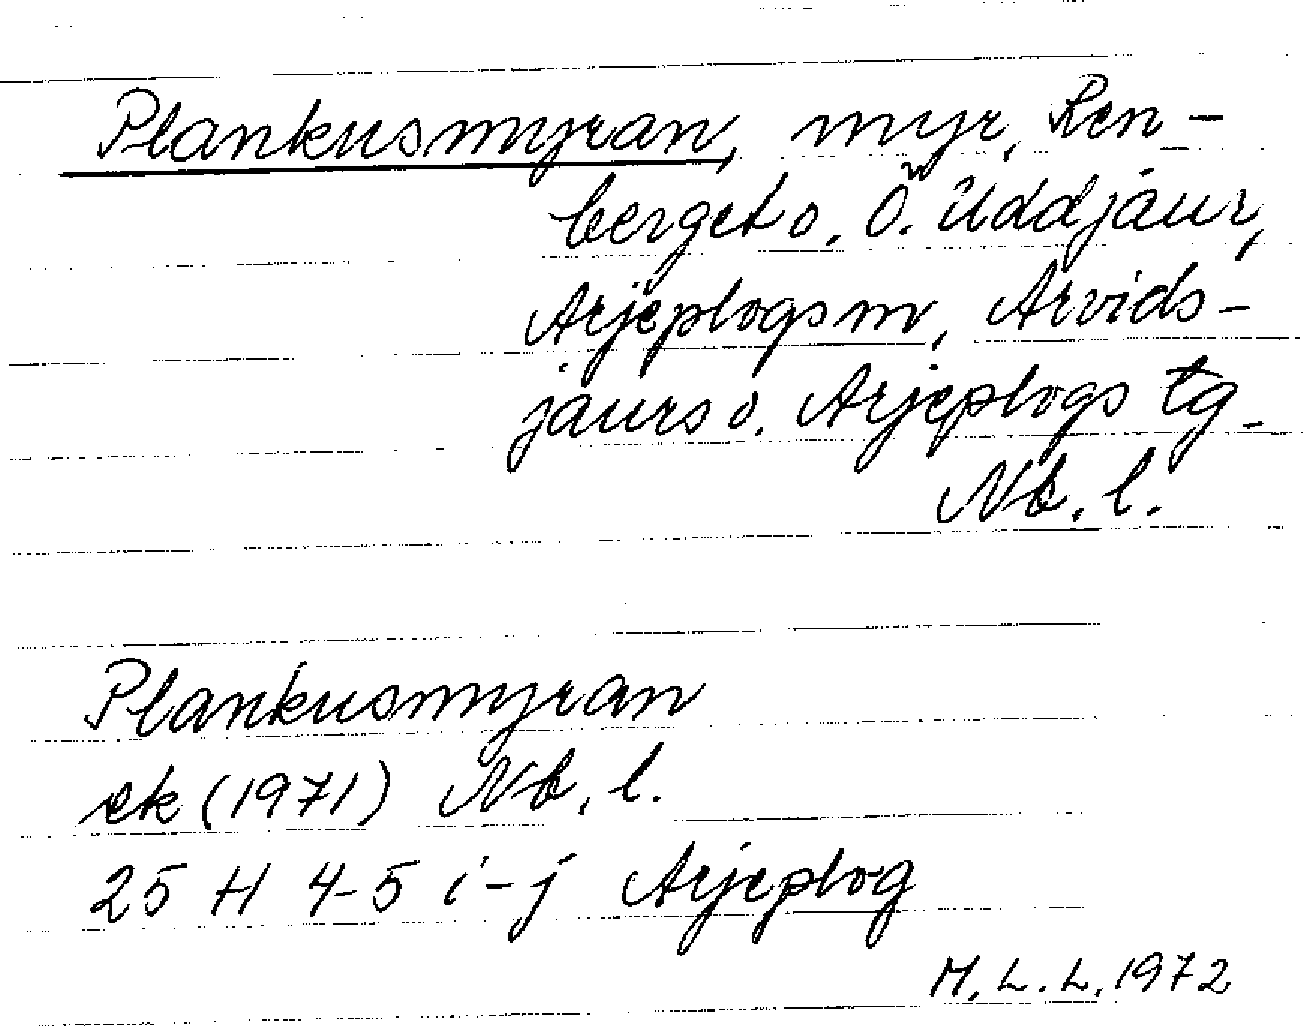 Plankusmyran, myr, Ren-
berget o. Ö. Uddjaur,
Arjeplogs sn, Arvids-
jaurs o. Arjeplogs tg.
Nb. l.
Plankusmyran
ek (1971) Nb. l.
25 H 4-5 i-j Arjeplog
M. L. L. 1972